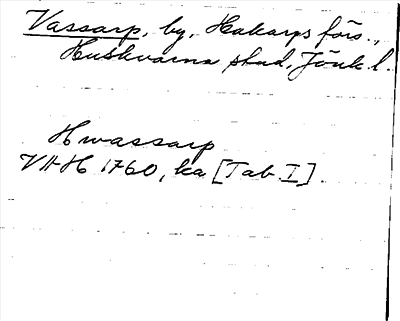 Vassarp, by, Hakarps förs.,
Huskvarna stad, Jönk. l.
Hwassarp
VAH 1760, ka [Tab. I].